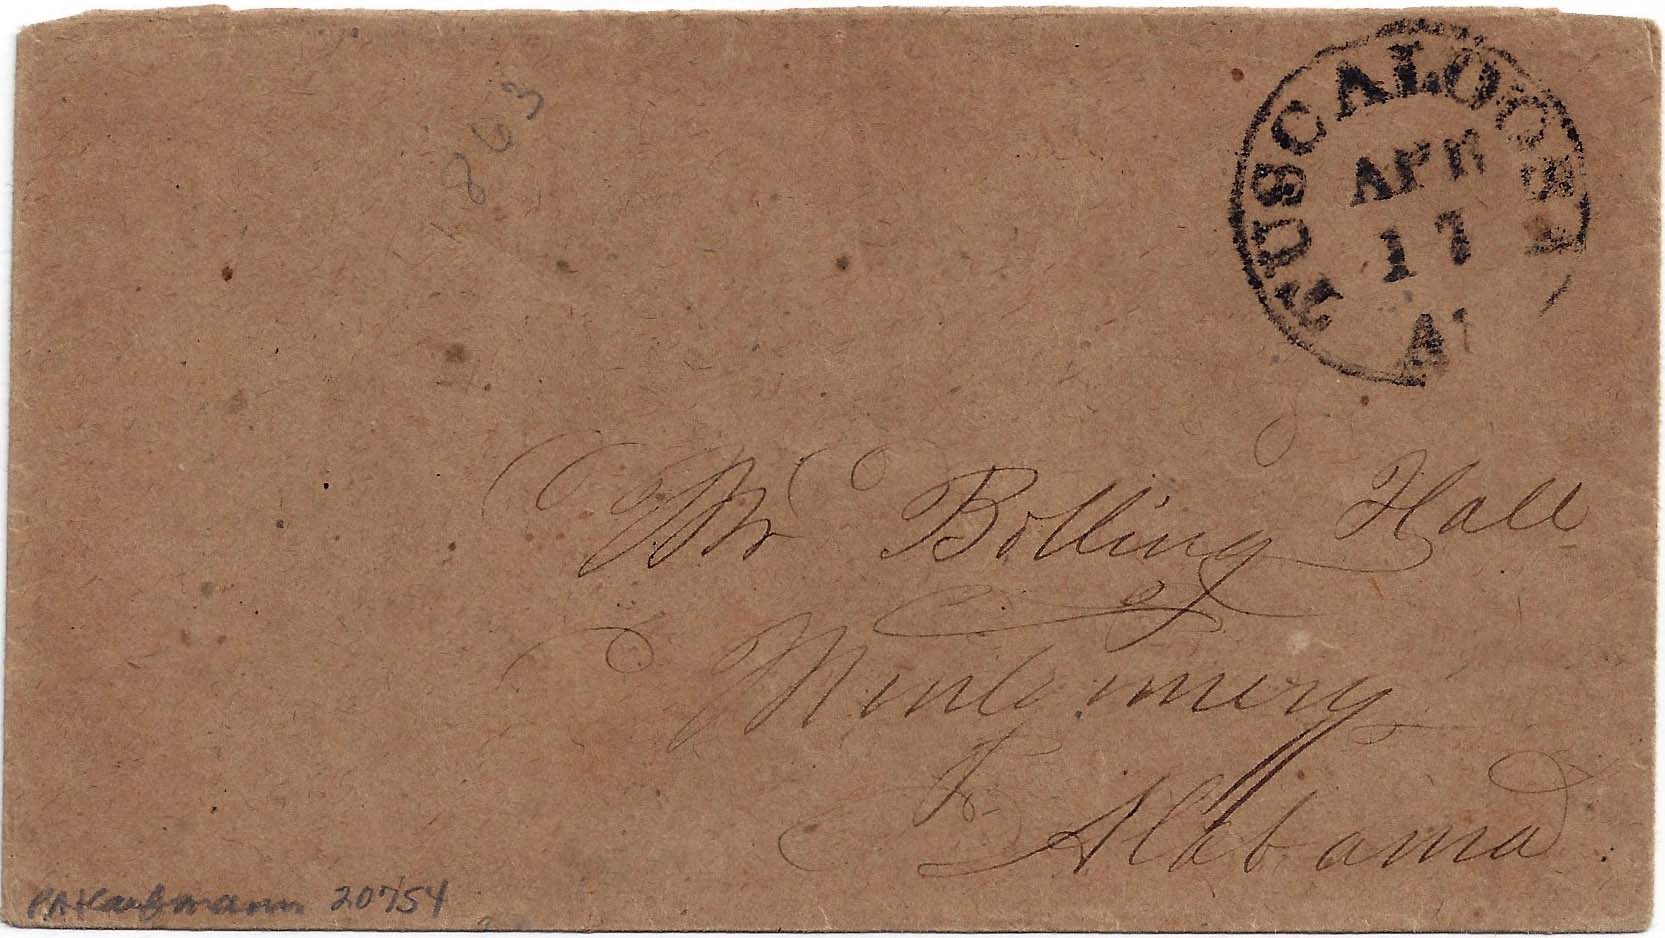 863
TUSCALOOSA
APR
17
Al
Mr Bolling Hall
Montgomery
Alabama
PAKaufmann 20754